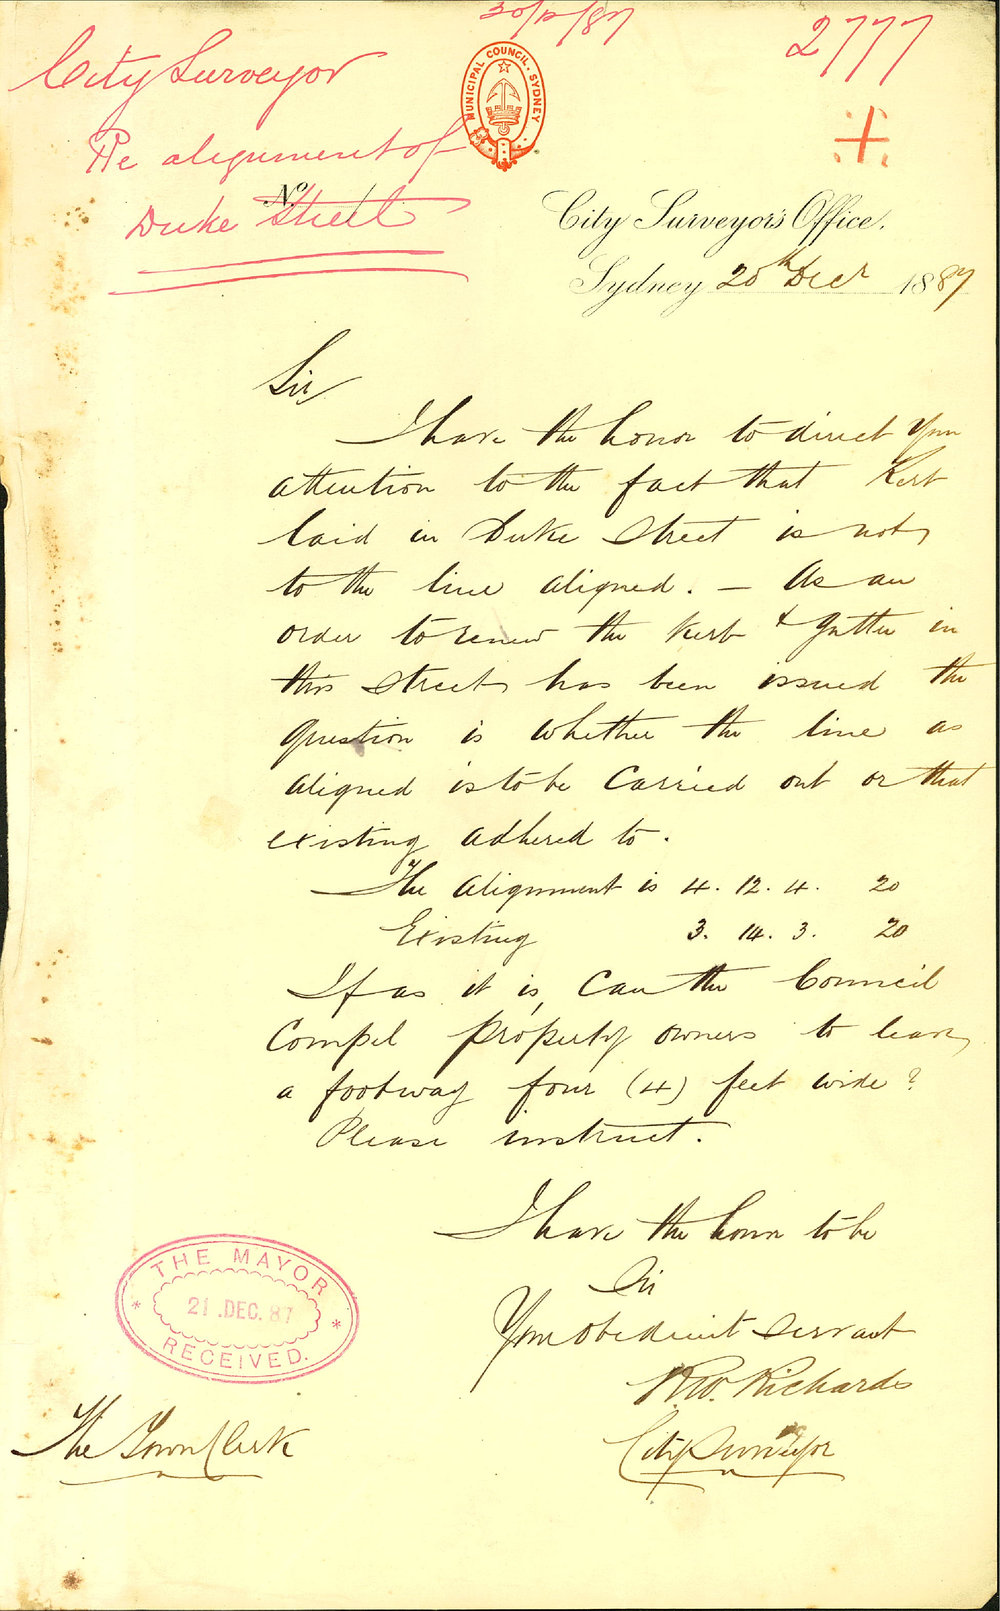 30/12/87
2777
City Surveyor
Re alignment of
Duke Street
MUNICIPAL COUNCIL. SYDNEY
No.
City Surveyor's Office.
Sydney 20th Decr 1887
Sir
I have the honor to direct your
attention to the fact that Kerb
laid in Duke Street is not
to the line aligned. — As an
order to renew the Kerb & gutter in
this Street has been issued the
question is whether the line as
aligned is to be carried out or that
existing adhered to.
The Alignment is 4. 12. 4. 20
Existing 3. 14. 3. 20
If as it is, can the Council
Compel property owners to leave
a footway four (4) feet wide?
Please instruct.
I have the honor to be
Sir
Your obedient servant
R.W. Richards
City Surveyor
THE MAYOR
21. DEC. 87
RECEIVED.
The Town Clerk